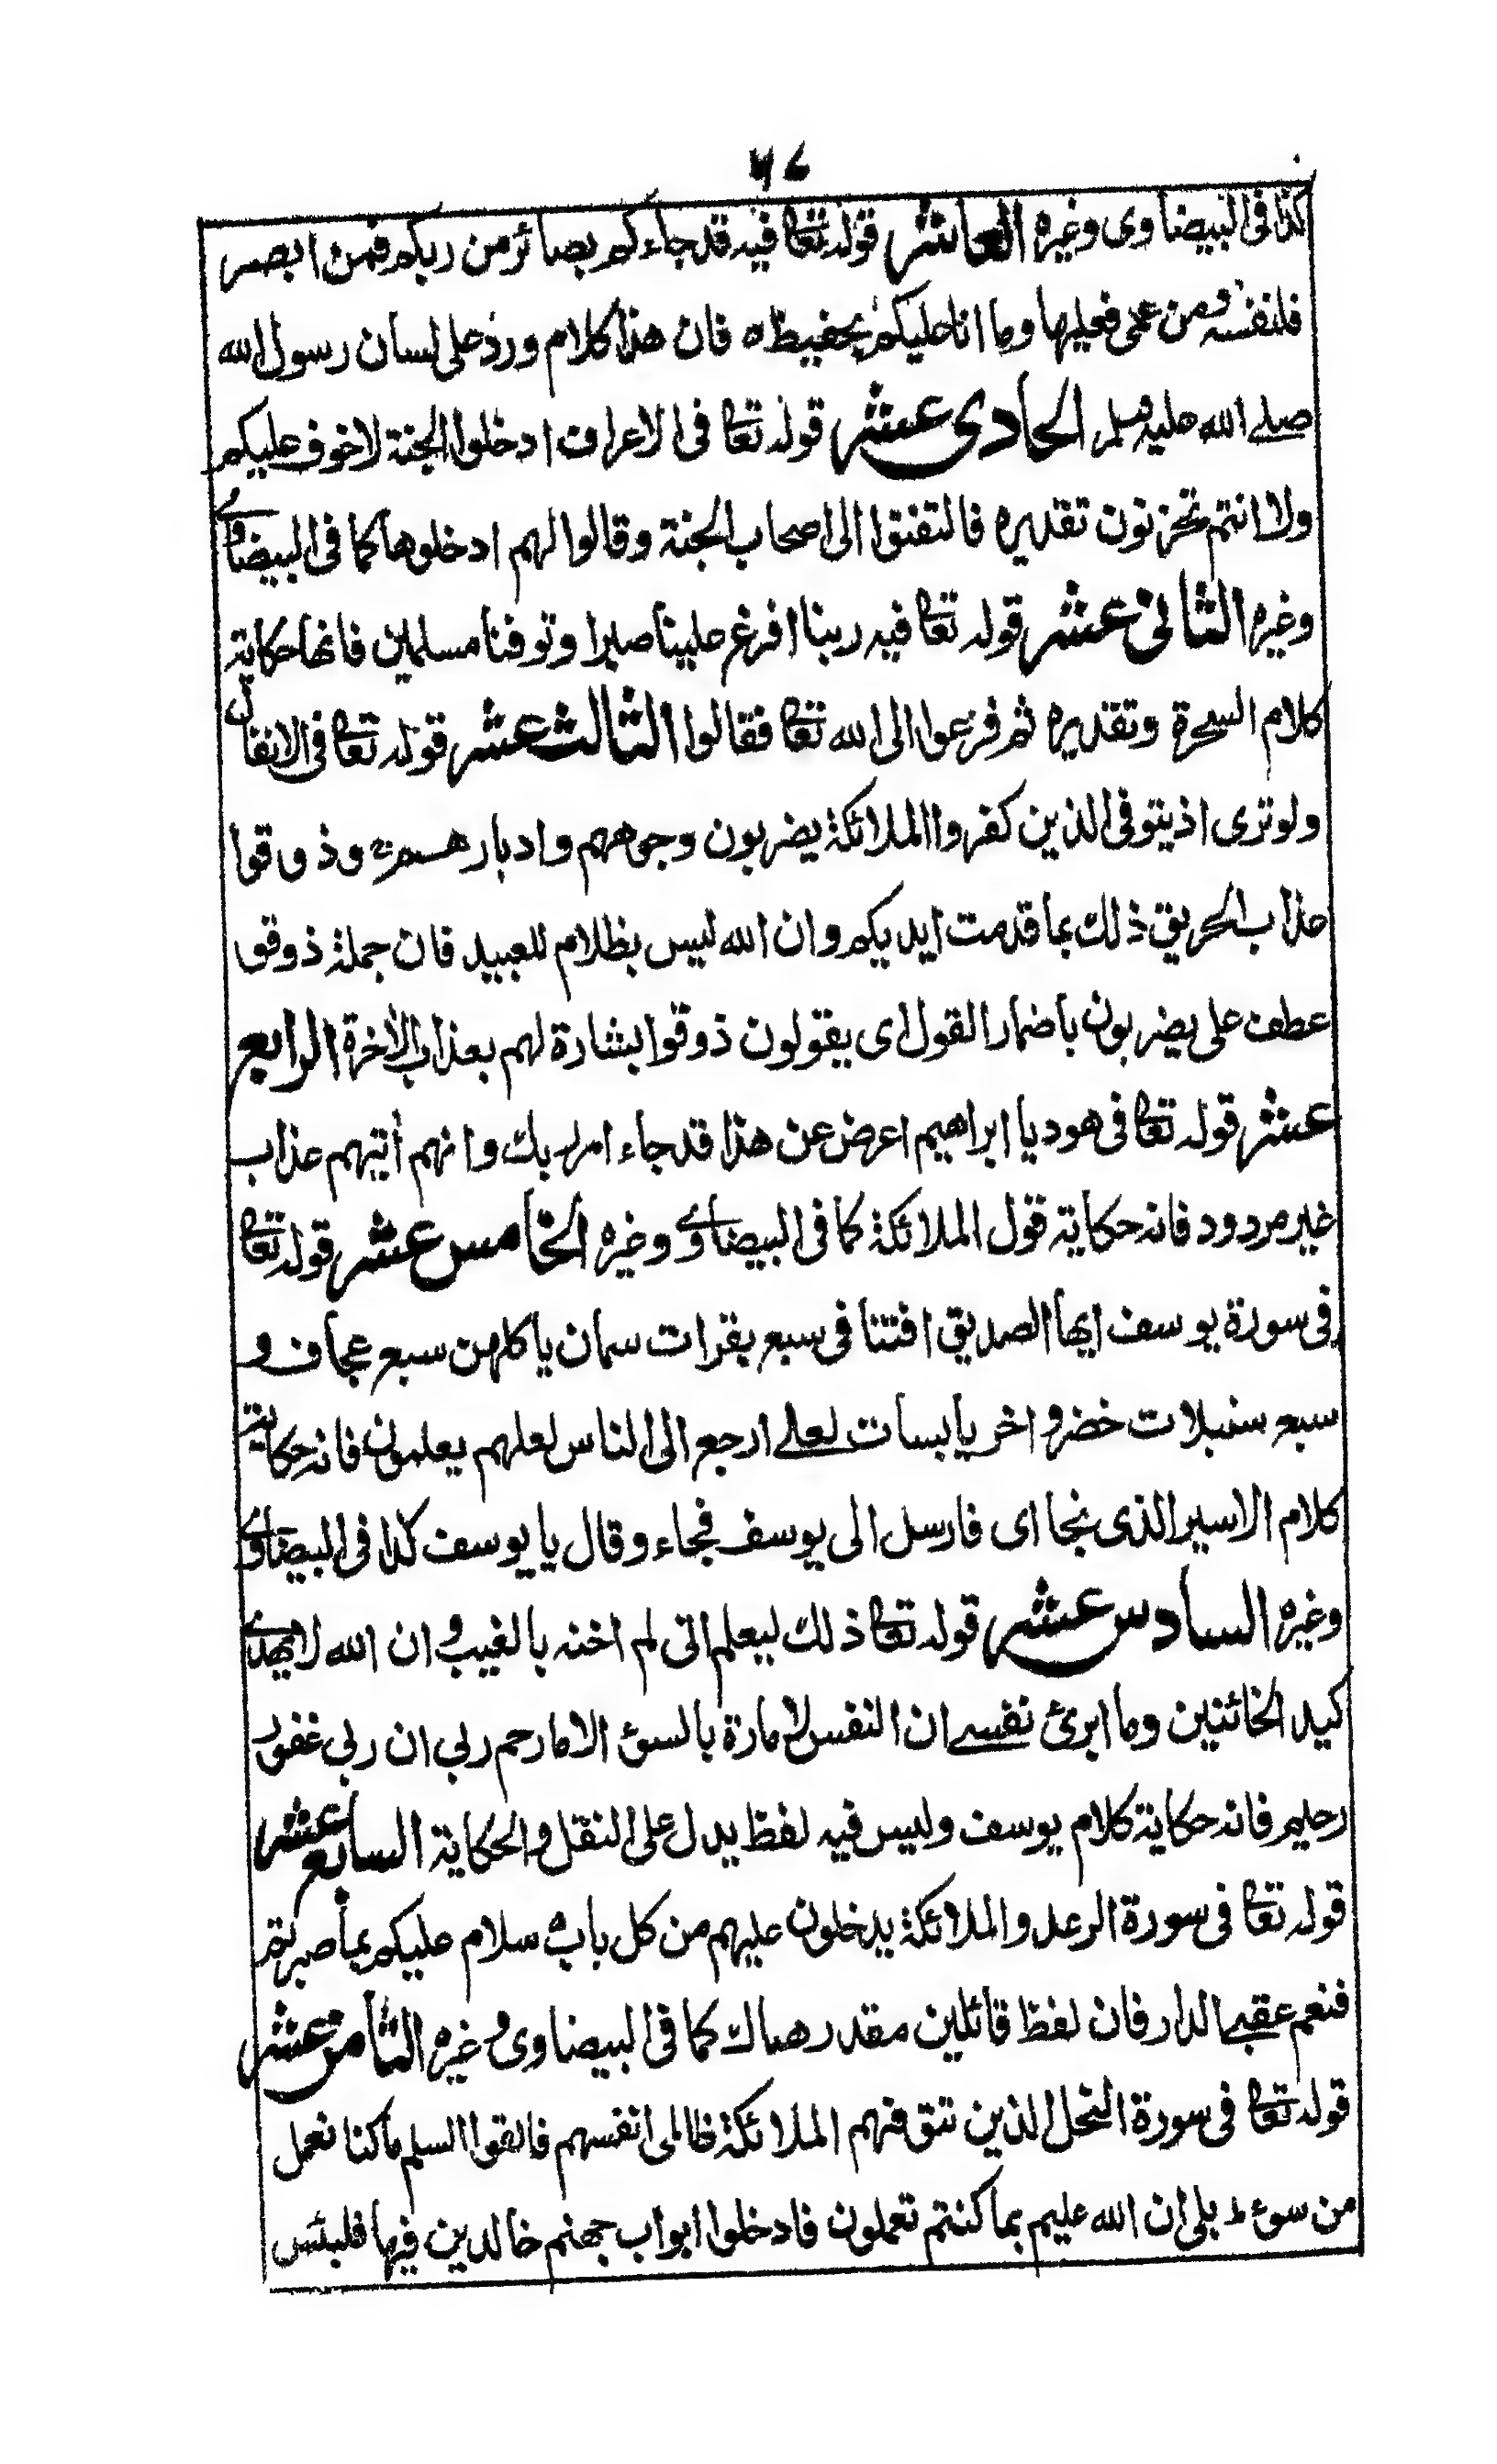 ٦٧
كذا فى البيضاوى وغيره العاشر قوله تعا فيه قد جاءكم بصائر من ربكم فمن ابصر
فلنفسه ومن عمى فعليها وما انا عليكم بحفيظ ه فان هذا كلام ورد على لسان رسول الله
صلے الله عليه وسلم الحادى عشر قوله تعا فى الاعراف ادخلوا الجنة لا خوف عليكم
ولا انتم تحزنون تقديره فالتفتوا الى اصحاب الجنة وقالوا لهم ادخلوها كما فى البيضاوے
وغيره الثانى عشر قوله تعا فيه ربنا افرغ علينا صبرا وتوفنا مسلمين فانها حكاية
كلام السحرة وتقديره ثم فزعوا الى الله تعا فقالوا الثالث عشر قوله تعا فى الانفال
ولو ترى اذ يتوفى الذين كفروا الملائكة يضربون وجوههم وادبارهم وذوقوا
عذاب الحريق ذلك بما قدمت ايديكم وان الله ليس بظلام للعبيد فان جملة ذوقوا
عطف على يضربون باضمار القول اى يقولون ذوقوا بشارة لهم بعذاب الاخرة الرابع
عشر قوله تعا فى هود يا ابراهيم اعرض عن هذا قد جاء امر ربك وانهم أتيهم عذاب
غير مردود فانه حكاية قول الملائكة كما فى البيضاوے وغيره الخامس عشر قوله تعا
فى سورة يوسف ايها الصديق افتنا فى سبع بقرات سمان ياكلهن سبع عجاف و
سبع سنبلات خضر واخر يابسات لعلے ارجع الى الناس لعلهم يعلمون فانه حكاية
كلام الاسير الذى نجا اى فارسل الى يوسف فجاء وقال يا يوسف كذا فى البيضاوے
وغيره السادس عشر قوله تعا ذلك ليعلم انى لم اخنه بالغيب وان الله لا يهدے
كيد الخائنين وما ابرئ نفسے ان النفس لامارة بالسوء الا ما رحم ربى ان ربى غفور
رحيم فانه حكاية كلام يوسف وليس فيه لفظ يدل على النقل والحكاية السابع عشر
قوله تعا فى سورة الرعد والملائكة يدخلون عليهم من كل باب ه سلام عليكم بما صبرتم
فنعم عقبے الدار فان لفظ قائلين مقدر هناك كما فى البيضاوى وغيره الثامن عشر
قوله تعا فى سورة النحل الذين تتوفهم الملائكة ظالمى انفسهم فالقوا السلم ما كنا نعمل
من سوء ط بلى ان الله عليم بما كنتم تعملون فادخلوا ابواب جهنم خالدين فيها فلبئس